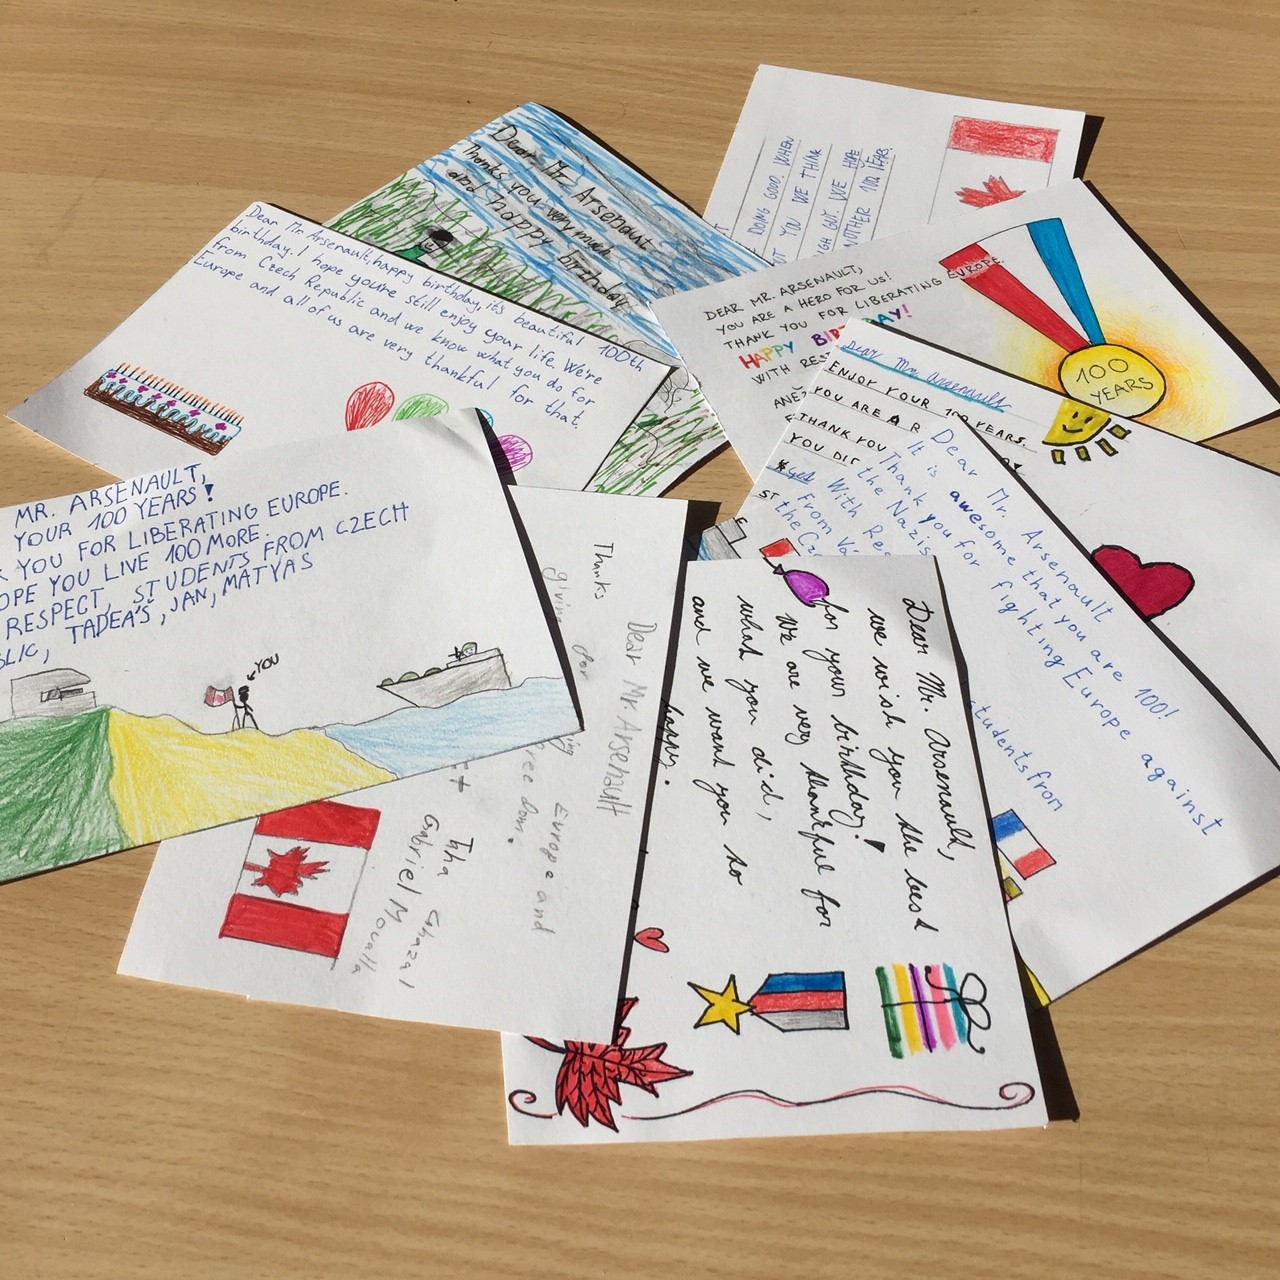 Dear Mr. Arsenault
Thanks you very much
and happy birthday
DOING GOOD. WHEN
YOU WE THINK
GUY. WE HOPE
100 YEARS.
Dear Mr. Arsenault, happy birthday, it's beautiful 100th
birthday. I hope you're still enjoy your life. We're
from Czech Republic and we know what you do for
Europe and all of us are very thankful for that.
DEAR MR. ARSENAULT,
YOU ARE A HERO FOR US!
THANK YOU FOR LIBERATING EUROPE.
HAPPY
WITH
100
YEARS
Dear Mr. Arsenault
ENJOY YOUR 100 YEARS.
YOU ARE A
THANK YOU
YOU
With
From
the
Dear Mr. Arsenault
It is awesome that you are 100!
Thank you for fighting Europe against
the Nazis
students from
MR. ARSENAULT,
YOUR 100 YEARS!
YOU FOR LIBERATING EUROPE.
YOU LIVE 100 MORE.
RESPECT, STUDENTS FROM CZECH
TADEÁŠ, JAN, MATYAS
YOU
Dear Mr. Arsenault
Thanks for
giving Europe and
Gabriel Moualla
Dear Mr. Arsenault,
we wish you the best
for your birthday!
We are very thankful for
what you did,
and we want you to
happy.